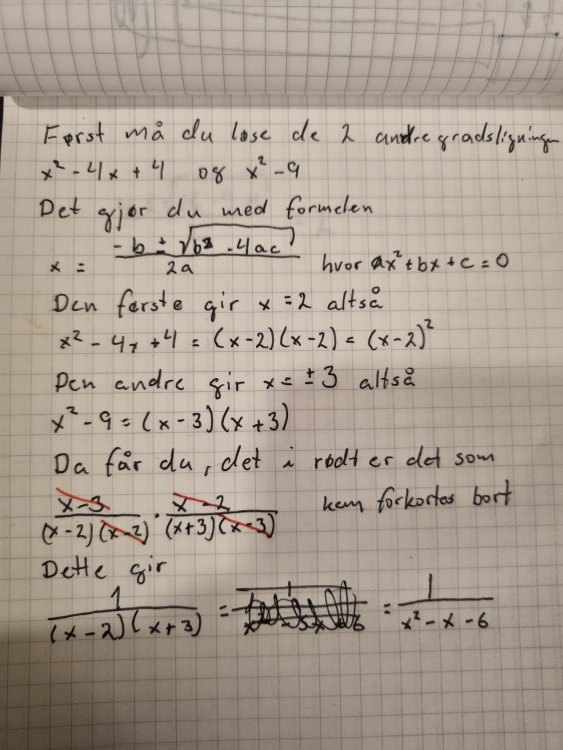 Først må du løse de 2 andregradsligningen
x² - 4x + 4 og x² - 9
Det gjør du med formelen
x = (-b ± √(b² - 4ac)) / 2a hvor ax² + bx + c = 0
Den første gir x = 2 altså
x² - 4x + 4 = (x-2)(x-2) = (x-2)²
Den andre gir x = ± 3 altså
x² - 9 = (x-3)(x+3)
Da får du, det i rødt er det som
(x-3) / ((x-2)(x-2)) · (x-2) / ((x+3)(x-3)) kan forkortes bort
Dette gir
1 / ((x-2)(x+3)) = = 1 / (x² - x - 6)